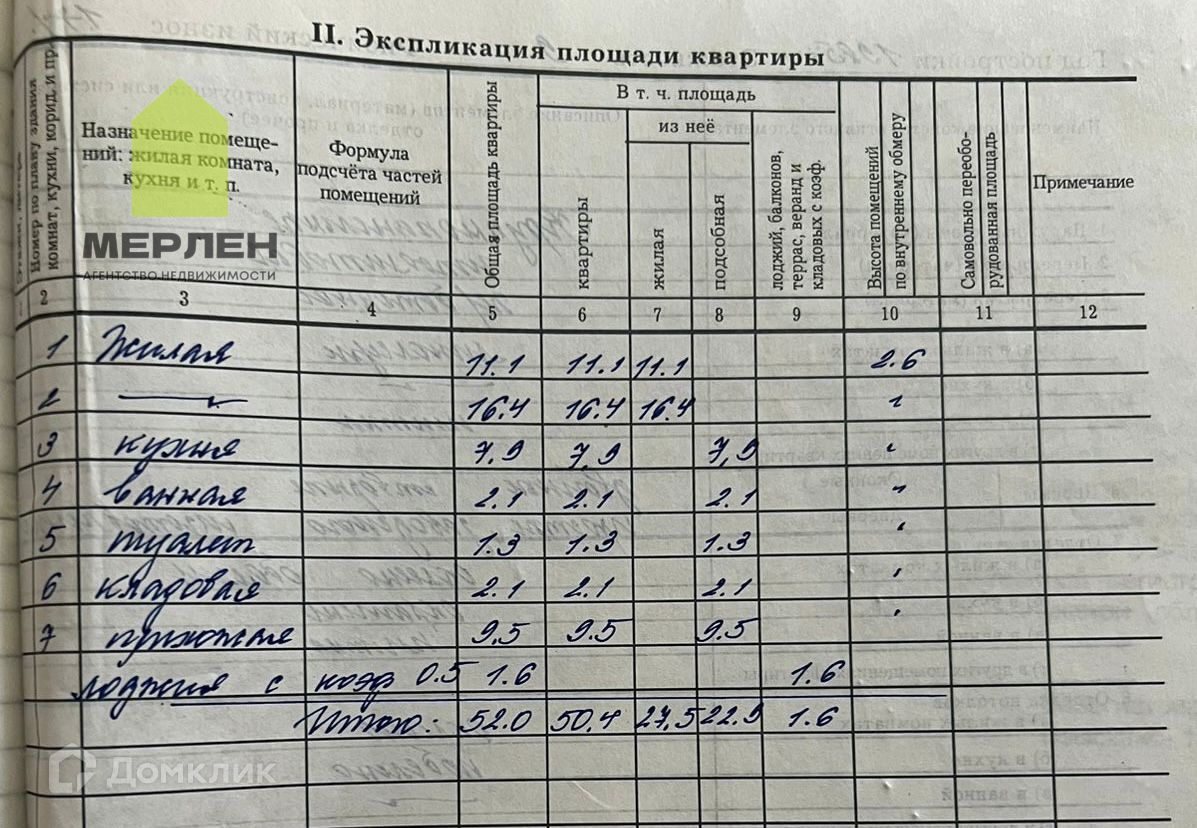 II. Экспликация площади квартиры
Номер по плану здания
комнат, кухни, корид. и пр.
Назначение помеще-
ний: жилая комната,
кухня и т. п.
Формула
подсчёта частей
помещений
Общая площадь квартиры
В т. ч. площадь
из неё
квартиры
жилая
подсобная
лоджий, балконов,
террас, веранд и
кладовых с коэф.
Высота помещений
по внутреннему обмеру
Самовольно переобо-
рудованная площадь
Примечание
МЕРЛЕН
АГЕНТСТВО НЕДВИЖИМОСТИ
2 3 4 5 6 7 8 9 10 11 12
1 Жилая 11.1 11.1 11.1 2.6
2 16.4 16.4 16.4 "
3 кухня 7,9 7,9 7,9 "
4 ванная 2.1 2.1 2.1 "
5 туалет 1.3 1.3 1.3 "
6 кладовая 2.1 2.1 2.1 "
7 прихожая 9.5 9.5 9.5 "
лоджия с коэф 0.5 1.6 1.6
Итого: 52.0 50.4 27,5 22.9 1.6
Домклик